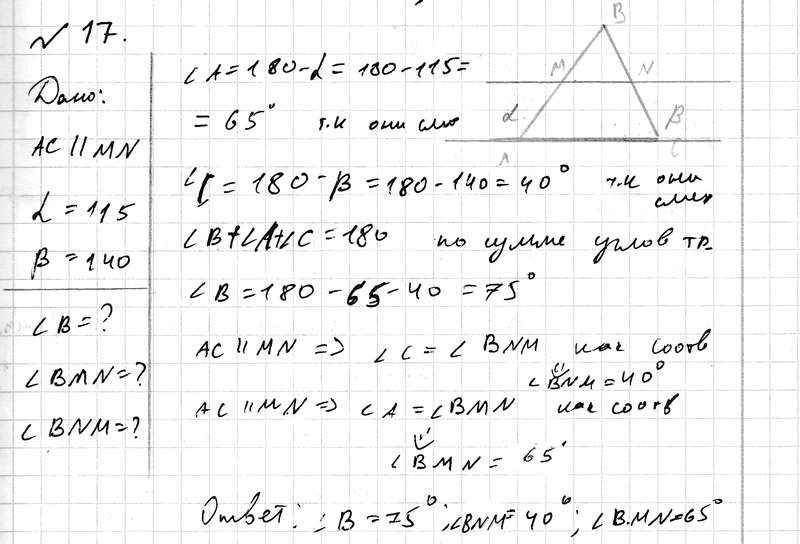 № 17.
Дано:
AC || MN
α = 115
β = 140
∠B = ?
∠BMN = ?
∠BNM = ?
∠A = 180 - α = 180 - 115 =
= 65° т.к они смеж
∠C = 180 - β = 180 - 140 = 40° т.к они
смеж
∠B + ∠A + ∠C = 180 по сумме углов тр.
∠B = 180 - 65 - 40 = 75°
AC || MN => ∠C = ∠BNM как соотв
∠BNM = 40°
AC || MN => ∠A = ∠BMN как соотв
∠BMN = 65°
Ответ: ∠B = 75°; ∠BNM = 40°; ∠BMN = 65°
B
M N
α β
A C